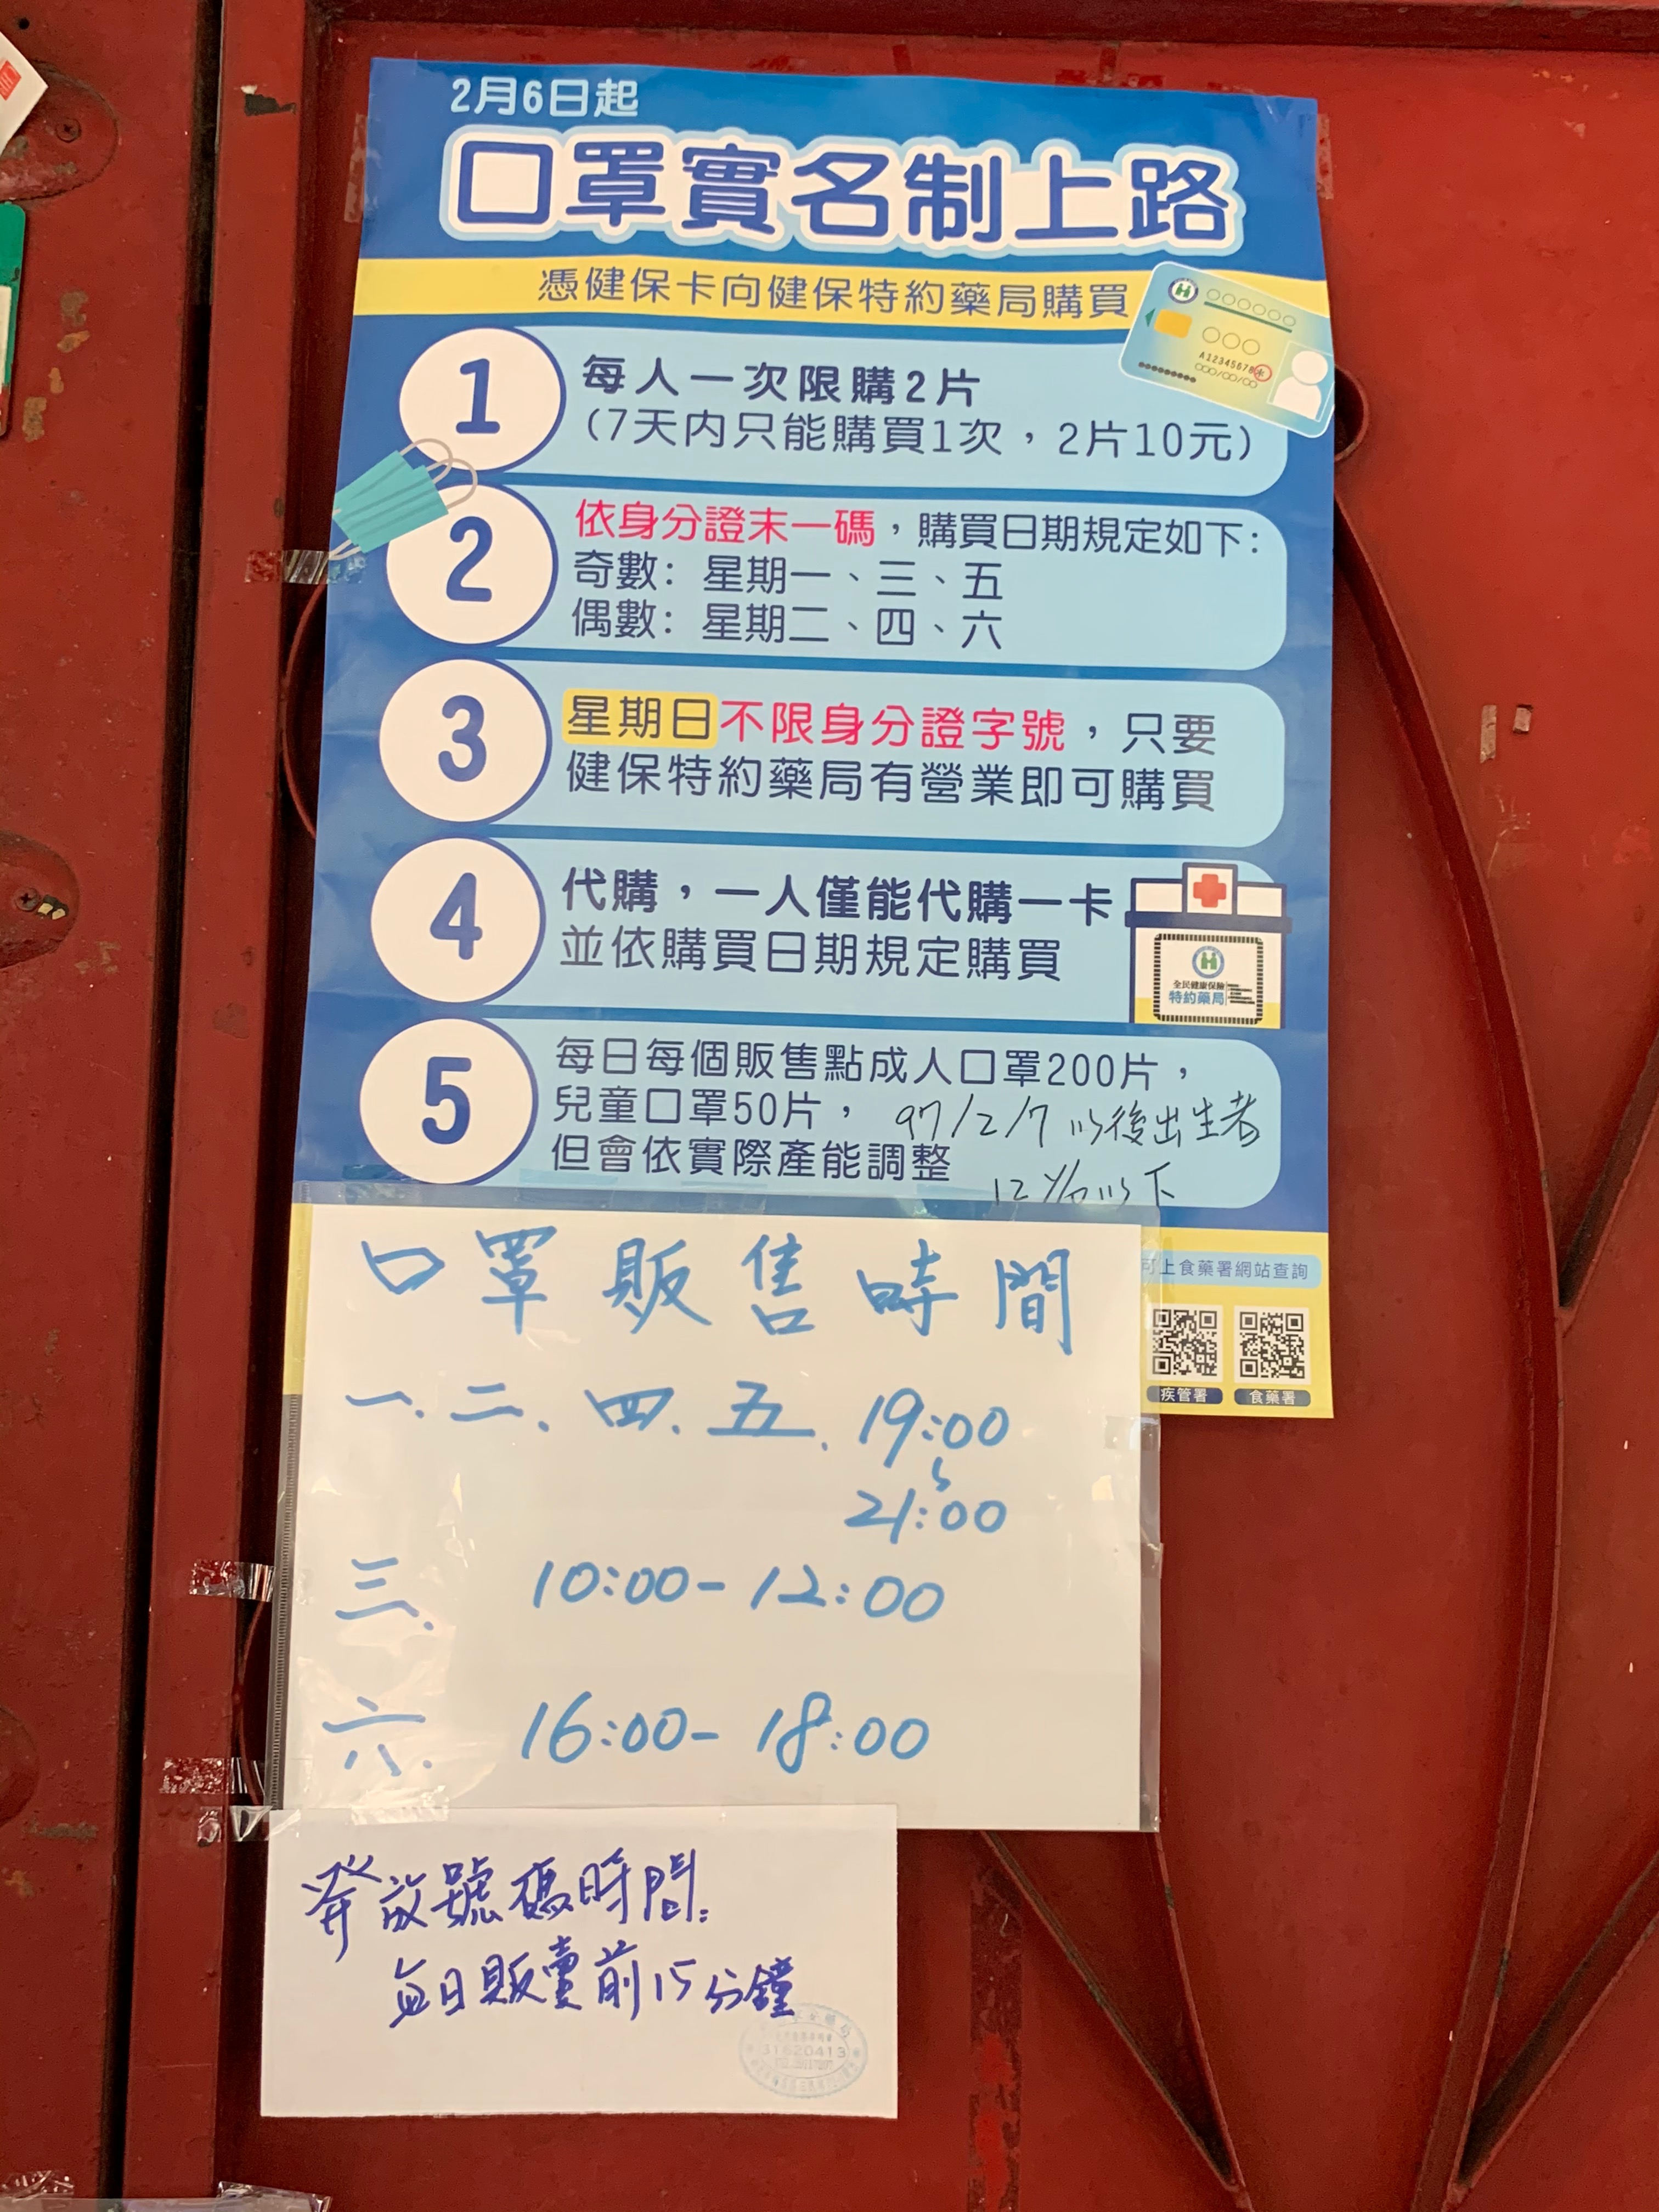 2月6日起
口罩實名制上路
憑健保卡向健保特約藥局購買
A12345678
1
每人一次限購2片
(7天內只能購買1次，2片10元)
2
依身分證末一碼，購買日期規定如下:
奇數: 星期一、三、五
偶數: 星期二、四、六
3
星期日不限身分證字號，只要
健保特約藥局有營業即可購買
4
代購，一人僅能代購一卡
並依購買日期規定購買
全民健康保險
特約藥局
5
每日每個販售點成人口罩200片，
兒童口罩50片，
但會依實際產能調整
97/2/7 以後出生者
12 以下
可上食藥署網站查詢
疾管署
食藥署
口罩販售時間
一、二、四、五、19:00
21:00
三、 10:00-12:00
六、 16:00-18:00
發放號碼時間:
每日販賣前15分鐘
31620413